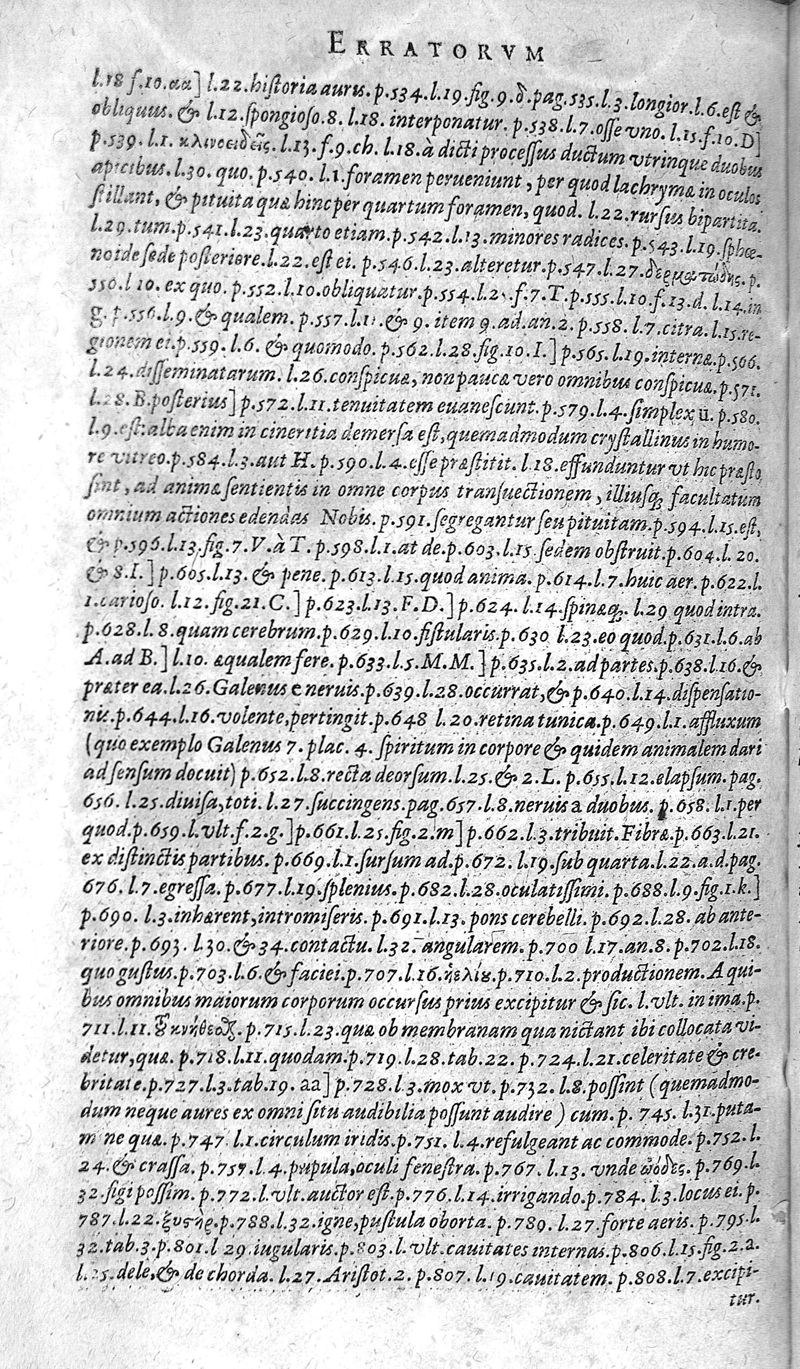 ERRATORVM
l.18 f.10.aa] l.22.historia auris.p.534.l.19.fig.9.δ.pag.535.l.3.longior.l.6.est &
obliquus. & l.12.spongioso.8. l.18. interponatur. p.538.l.7.osse vno. l.15.f.10.D]
p.539. l.1. κλινοειδεῖς. l.13. f.9.ch. l.18. à dicti processus ductum vtrinque duobus
apicibus. l.30. quo. p.540. l.1.foramen perueniunt, per quod lachrymæ in oculos
stillant, & pituita quæ hinc per quartum foramen, quod. l.22.rursus bipartita.
l.29.tum.p.541.l.23.quarto etiam.p.542.l.13.minores radices. p.543.l.19.sphœ-
noide sede posteriore.l.22.est ei. p.546.l.23.alteretur.p.547.l.27.δερματώδης. p.
550.l 10. ex quo. p.552.l.10.obliquatur.p.554.l.2 .f.7.T.p.555.l.10.f.13.d. l.14.in
g. p.556.l.9.& qualem. p.557.l.1 .& 9. item 9.ad.an.2. p.558. l.7.citra. l.15.re-
gionem ei.p.559. l.6. & quomodo. p.562.l.28.fig.10.I.] p.565. l.19.internæ.p.566.
l.24.disseminatarum. l.26.conspicuæ, non paucæ vero omnibus conspicuæ.p.571.
l.28.B.posterius] p.572.l.11.tenuitatem euanescunt.p.579.l.4.simplex ü.p.580.
l.9.est:alba enim in cineritia demersa est,quemadmodum crystallinus in humo-
re vitreo.p.584.l.3.aut H. p.590.l.4.esse præstitit. l.18.effunduntur vt hic præsto
sint, ad animæ sentientis in omne corpus transuectionem, illiusq́; facultatum
omnium actiones edendas Nobis.p.591.segregantur seu pituitam.p.594.l.15.est,
& p.596.l.13.fig.7.V.àT. p.598.l.1.at de.p.603.l.15.sedem obstruit.p.604.l. 20.
& 8.I.]p.605.l.13. & pene. p.613.l.15.quod anima. p.614.l.7.huic aer. p.622.l.
1.carioso. l.12. fig.21.C.]p.623.l.13.F.D.]p.624. l.14.spinæq́;. l.29 quod intra.
p.628.l. 8.quam cerebrum.p.629.l.10.fistularis.p.630 l.23.eo quod.p.631.l.6.ab
A.ad B.] l.10. æqualem fere. p.633.l.5.M.M.]p.635.l.2.ad partes.p.638.l.16.&
præter ea.l.26.Galenus e neruis.p.639.l.28.occurrat,& p.640.l.14.dispensatio-
nis.p.644.l.16.volente,pertingit.p.648 l.20.retina tunica.p.649.l.1.affluxum
(quo exemplo Galenus 7. plac. 4. spiritum in corpore & quidem animalem dari
ad sensum docuit) p.652.l.8.recta deorsum.l.25.& 2.L. p.655.l.12.elapsum.pag.
656. l.25.diuisa,toti. l.27.succingens.pag.657.l.8.neruis a duobus. p.658. l.1.per
quod.p.659.l.vlt.f.2.g.]p.661.l.25.fig.2.m]p.662.l.3.tribuit.Fibræ.p.663.l.21.
ex distinctis partibus. p.669.l.1.sursum ad.p.672. l.19.sub quarta.l.22.a.d.pag.
676. l.7.egressa. p.677.l.19.splenius.p.682.l.28.oculatissimi. p.688.l.9.fig.1.k.]
p.690. l.3.inhærent,intromiseris. p.691.l.13. pons cerebelli. p.692.l.28. ab ante-
riore.p.693. l.30.& 34.contactu. l.32. angularem. p.700 l.17.an.8. p.702.l.18.
quo gustus.p.703.l.6.& faciei.p.707.l.16.ἡελίου.p.710.l.2.productionem. A qui-
bus omnibus maiorum corporum occursus prius excipitur & sic. l.vlt. in ima.p.
711.l.11. p.715.l.23.quæ ob membranam qua nictant ibi collocata vi-
detur,quæ. p.718.l.11.quodam.p.719.l.28.tab.22. p.724.l.21.celeritate & cre-
britate.p.727.l.3.tab.19. aa]p.728.l.3.mox vt. p.732. l.8.possint (quemadmo-
dum neque aures ex omni situ audibilia possunt audire ) cum. p. 745. l.31.puta-
m ne quæ. p.747 l.1.circulum iridis.p.751. l.4.refulgeant ac commode.p.752.l.
24.& crassa. p.757.l.4.pupula,oculi fenestra. p.767. l.13. vnde ὠώδες. p.769.l.
32.figi possim. p.772.l.vlt.auctor est.p.776.l.14.irrigando.p.784. l.3.locus ei.p.
787.l.22.ξυστὴρ.p.788.l.32.igne,pustula oborta. p.789. l.27.forte aeris. p.795.l.
32.tab.3.p.801.l 29.iugularis.p.803.l.vlt.cauitates internas.p.806.l.15.fig.2.a.
l.25.dele,& de chorda. l.27. Aristot.2. p.807. l.19.cauitatem. p.808.l.7.excipi-
tur.